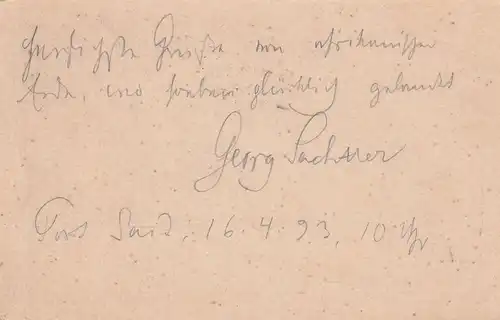 Herzlichste Grüße von afrikanischer
Erde, wo soeben glücklich gelandet
Georg Sachsser
Port Said, 16.4.93, 10 Uhr